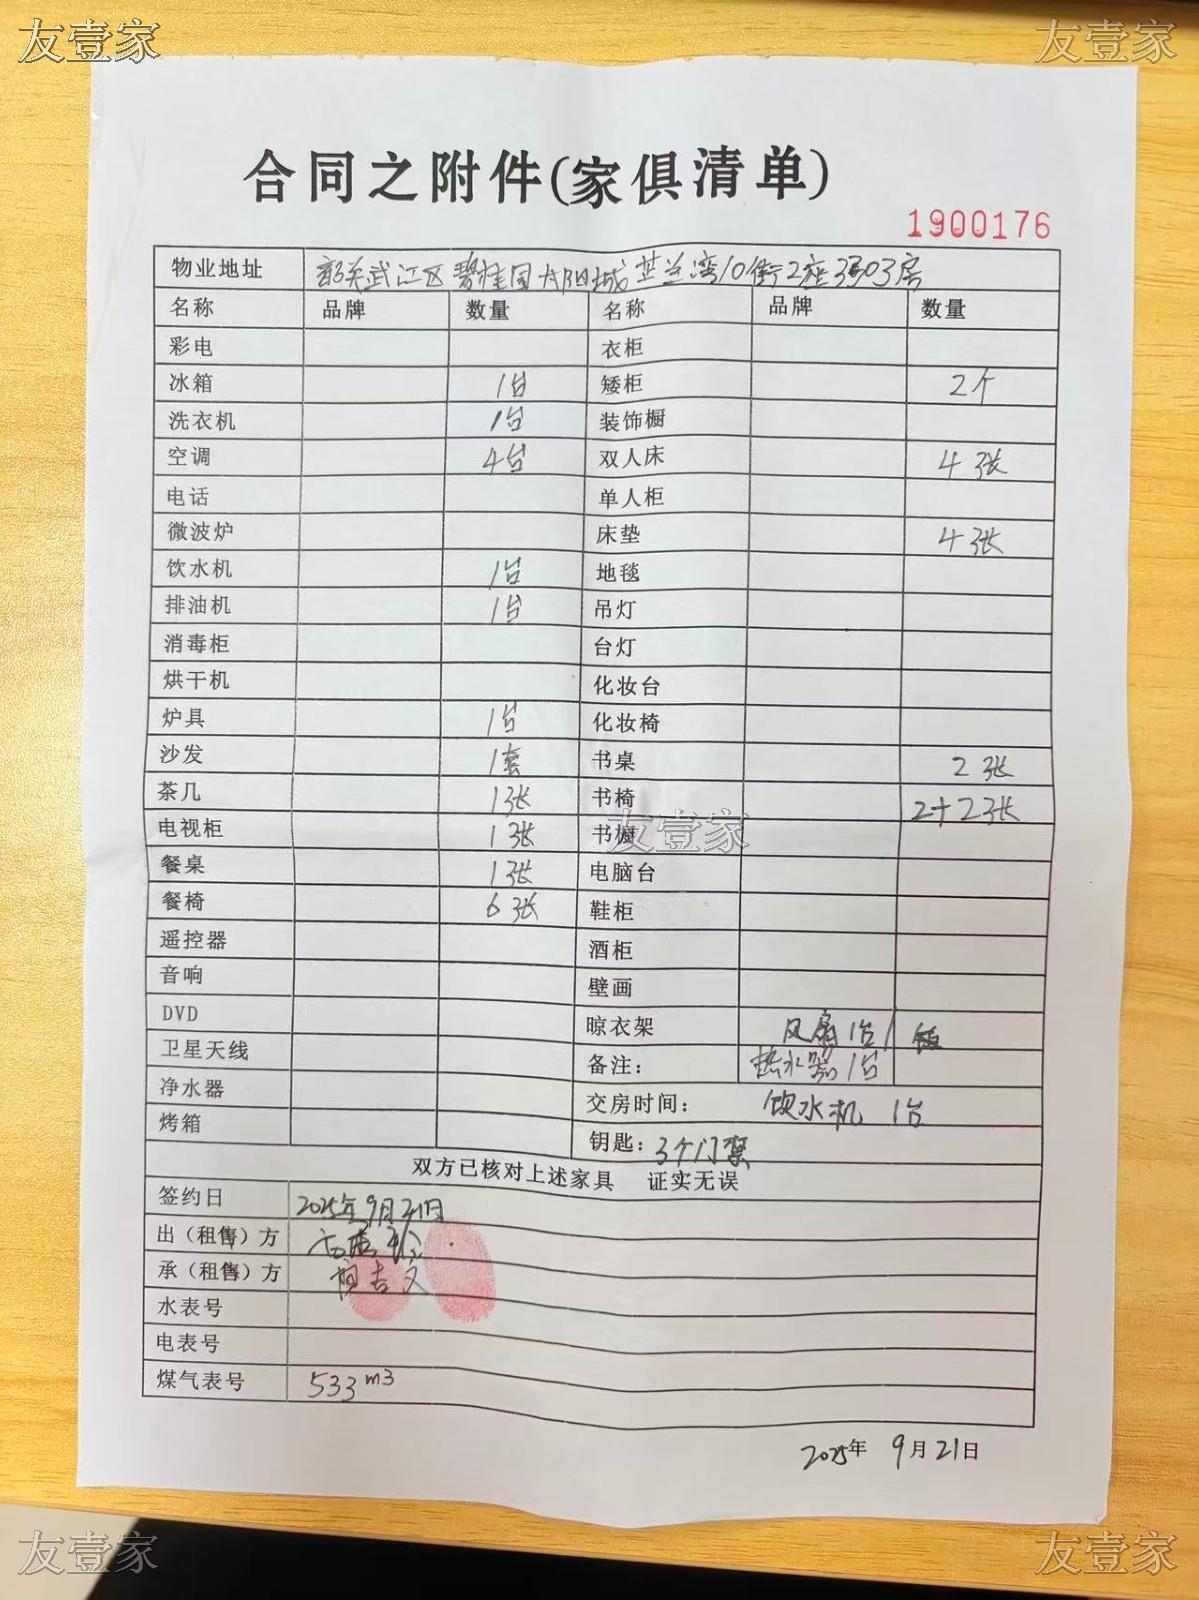 友壹家 友壹家
合同之附件(家俱清单)
1900176
物业地址 韶关武江区碧桂园太阳城芷兰湾10街2座3503房
名称 品牌 数量 名称 品牌 数量
彩电 衣柜
冰箱 1台 矮柜 2个
洗衣机 1台 装饰橱
空调 4台 双人床 4张
电话 单人柜
微波炉 床垫 4张
饮水机 1台 地毯
排油机 1台 吊灯
消毒柜 台灯
烘干机 化妆台
炉具 1台 化妆椅
沙发 1套 书桌 2张
茶几 1张 书椅 2+2张
友壹家
电视柜 1张 书橱
餐桌 1张 电脑台
餐椅 6张 鞋柜
遥控器 酒柜
音响 壁画
DVD 晾衣架 风扇1台
卫星天线 备注: 热水器1台
净水器 交房时间: 饮水机 1台
烤箱 钥匙: 3个门禁
双方已核对上述家具 证实无误
签约日 2025年9月21日
出（租售）方
承（租售）方 吉文
水表号
电表号
煤气表号 533m3
2025年 9月21日
友壹家 友壹家